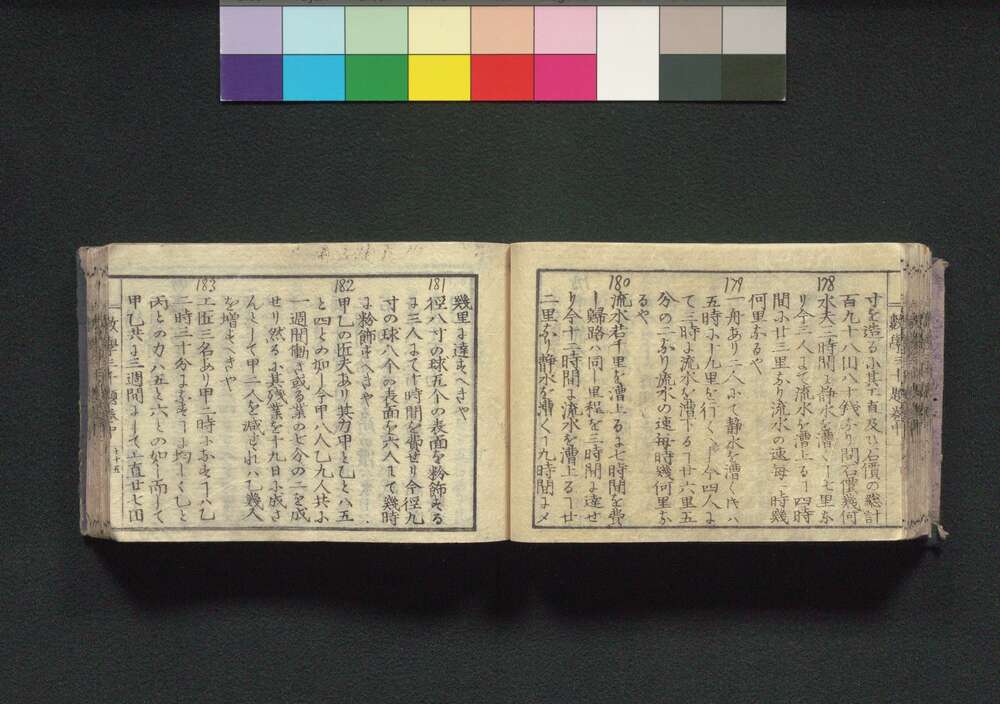 寸を造る小其工直及ひ石價の總計
百九十八円八十錢ふり問石價幾何
178
水夫二時間よ静水を漕く一七里ふ
り今三人よて流水を漕上る一四時
間小廿三里ふり流水の速每一時幾
何里ふるや
179
一舟あり二人小て静水を漕くにハ
五時小一九里を行く、今四人よ
て三時よ流水を漕下る一廿六里五
分の二ふり流水の速每時幾何里ふ
るや
180
流水若干里を漕上るよ七時間を費
し歸路ハ同一里程を三時間よ達せ
り今十二時間よ流水を漕上る一廿
二里ふり静水を漕く一九時間よメ
幾里よ達すへきや
181
徑八寸の球五个の表面を粉飾する
よ三人よて十時間を費せり今徑九
寸の球八个の表面を六人よて幾時
よ粉飾すへきや
182
甲乙の匠夫あり其力甲と乙とハ五
と四との如し今甲八人乙九人共小
一週間働き或る業の七分の二を成
せり然るよ其殘業を十九日小成さ
んとして甲二人を減すれハ乙幾人
を增すへきや
183
工匠三名あり甲二時小なす一ハ乙
二時三十分よなす一よ均しく乙と
丙との力ハ五と六との如し而して
甲乙共よ三週間よして工直廿七円
十五